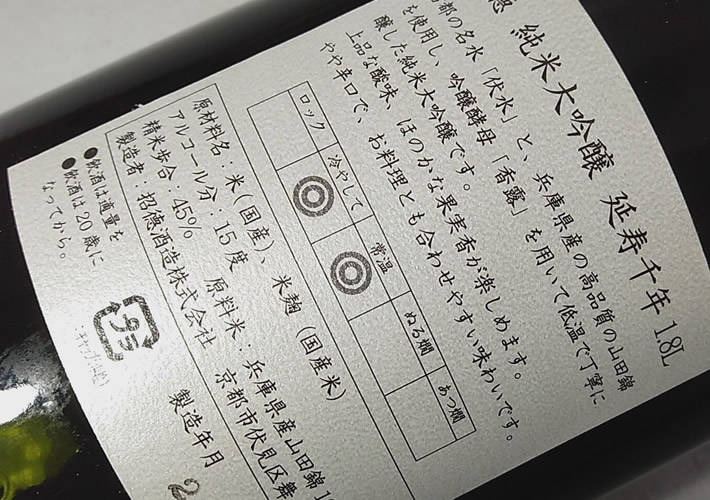 純米大吟醸 延寿千年 1.8L
都の名水「伏水」と、兵庫県産の高品質の山田錦
を使用し、吟醸酵母「香露」を用いて低温で丁寧に
醸した純米大吟醸です。
上品な酸味、ほのかな果実香が楽しめます。
やや辛口で、お料理とも合わせやすい味わいです。
ロック 冷やして 常温 ぬる燗 あつ燗
◎ ◎
原材料名：米(国産)、米麹(国産米)
アルコール分：15度 原料米：兵庫県産山田錦
精米歩合：45%
製造者：招德酒造株式会社 京都市伏見区舞
製造年月
●飲酒は適量を
●飲酒は20歳に
なってから。